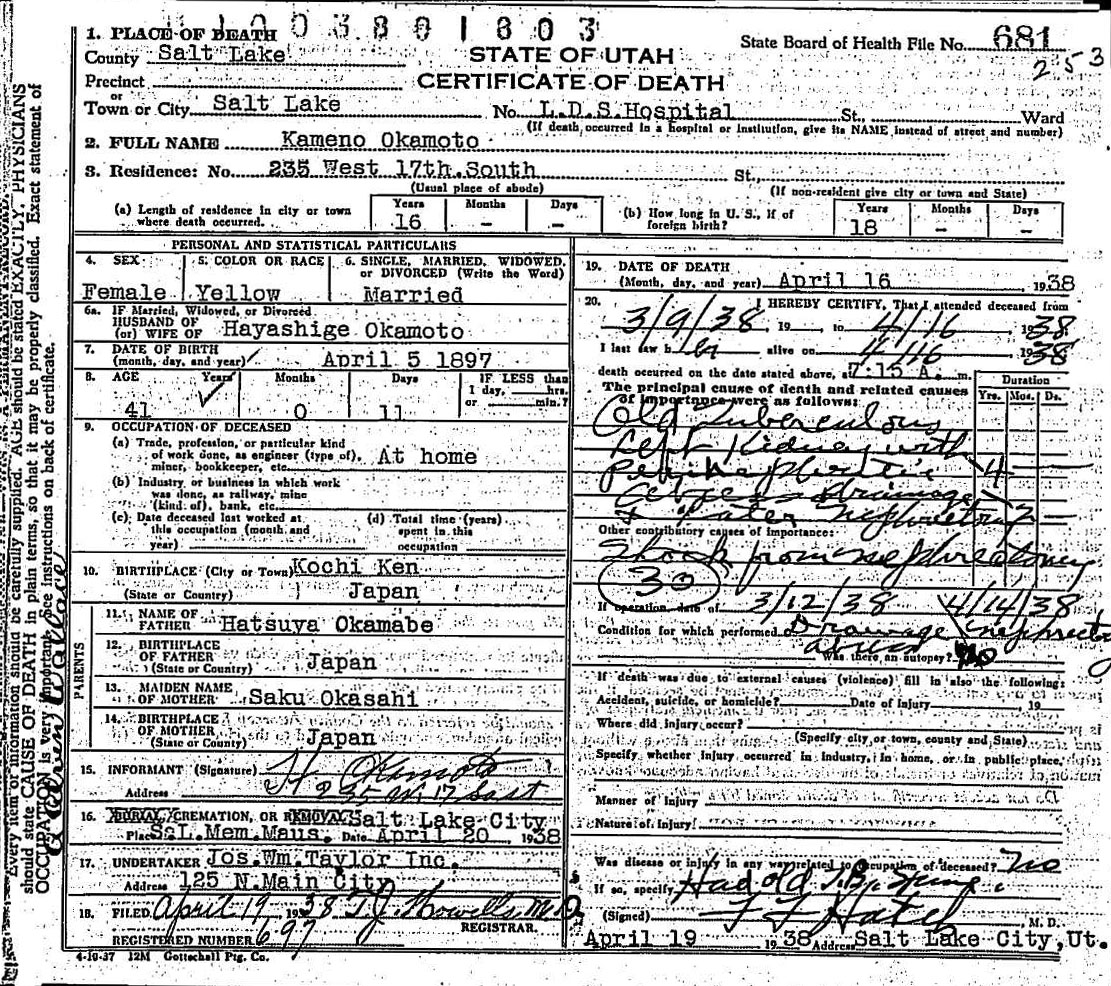 1003801803
1. PLACE OF DEATH
County Salt Lake
STATE OF UTAH
State Board of Health File No. 681
253
Precinct
CERTIFICATE OF DEATH
or
Town or City Salt Lake No. L.D.S.Hospital St., Ward
(If death occurred in a hospital or institution, give its NAME instead of street and number)
2. FULL NAME Kameno Okamoto
3. Residence: No. 235 West 17th.South St.,
(Usual place of abode) (If non-resident give city or town and State)
(a) Length of residence in city or town where death occurred. Years 16 Months - Days -
(b) How long in U. S., if of foreign birth? Years 18 Months - Days -
PERSONAL AND STATISTICAL PARTICULARS
4. SEX Female
5. COLOR OR RACE Yellow
6. SINGLE, MARRIED, WIDOWED, or DIVORCED (Write the Word) Married
6a. IF Married, Widowed, or Divorced
HUSBAND OF
(or) WIFE OF Hayashige Okamoto
7. DATE OF BIRTH
(month, day, and year) April 5 1897
8. AGE Years 41 Months 0 Days 11 IF LESS than 1 day, hrs. or min.?
9. OCCUPATION OF DECEASED
(a) Trade, profession, or particular kind
of work done, as engineer (type of),
miner, bookkeeper, etc. At home
(b) Industry or business in which work
was done, as railway, mine
(kind of), bank, etc.
(c) Date deceased last worked at
this occupation (month and
year)
(d) Total time (years)
spent in this
occupation
10. BIRTHPLACE (City or Town) Kochi Ken
(State or Country) Japan
PARENTS
11. NAME OF
FATHER Hatsuya Okamabe
12. BIRTHPLACE
OF FATHER
(State or Country) Japan
13. MAIDEN NAME
OF MOTHER Saku Okasahi
14. BIRTHPLACE
OF MOTHER
(State or Country) Japan
15. INFORMANT (Signature) H Okamoto
Address 235 W 17 So
16. BURIAL, CREMATION, OR REMOVAL Salt Lake City
Place S.L.Mem.Maus. Date April 20 1938
17. UNDERTAKER Jos.Wm.Taylor Inc.
Address 125 N.Main City
18. FILED April 19 1938 T.J. Howells M.D.
REGISTRAR.
REGISTERED NUMBER 697
4-10-37 12M Gottschall Ptg. Co.
19. DATE OF DEATH
(Month, day, and year) April 16 1938
20. I HEREBY CERTIFY, That I attended deceased from
3/9/38, 19 to 4/16 1938
I last saw her alive on 4/16 1938
death occurred on the date stated above, at 7:15 A. m.
The principal cause of death and related causes
of importance were as follows:
Duration
Yrs. Mos. Ds.
Old Tuberculous
Left Kidney with
4
abscess Drainage
& Later nephrectomy
Other contributory causes of importance:
Shock from nephrectomy
30
If operation, date of 3/12/38 4/14/38
Condition for which performed Drainage abscess nephrectomy
Was there an autopsy? No
If death was due to external causes (violence) fill in also the following:
Accident, suicide, or homicide? Date of Injury 19
Where did injury occur?
(Specify city or town, county and State)
Specify whether injury occurred in industry, in home, or in public place.
Manner of Injury
Nature of Injury
Was disease or injury in any way related to occupation of deceased? No
If so, specify Had old T.B.
(Signed) M. D.
April 19 1938 Address Salt Lake City,Ut.
Every item of information should be carefully supplied. AGE should be stated EXACTLY. PHYSICIANS
should state CAUSE OF DEATH in plain terms, so that it may be properly classified. Exact statement of
OCCUPATION is very important. See instructions on back of certificate.